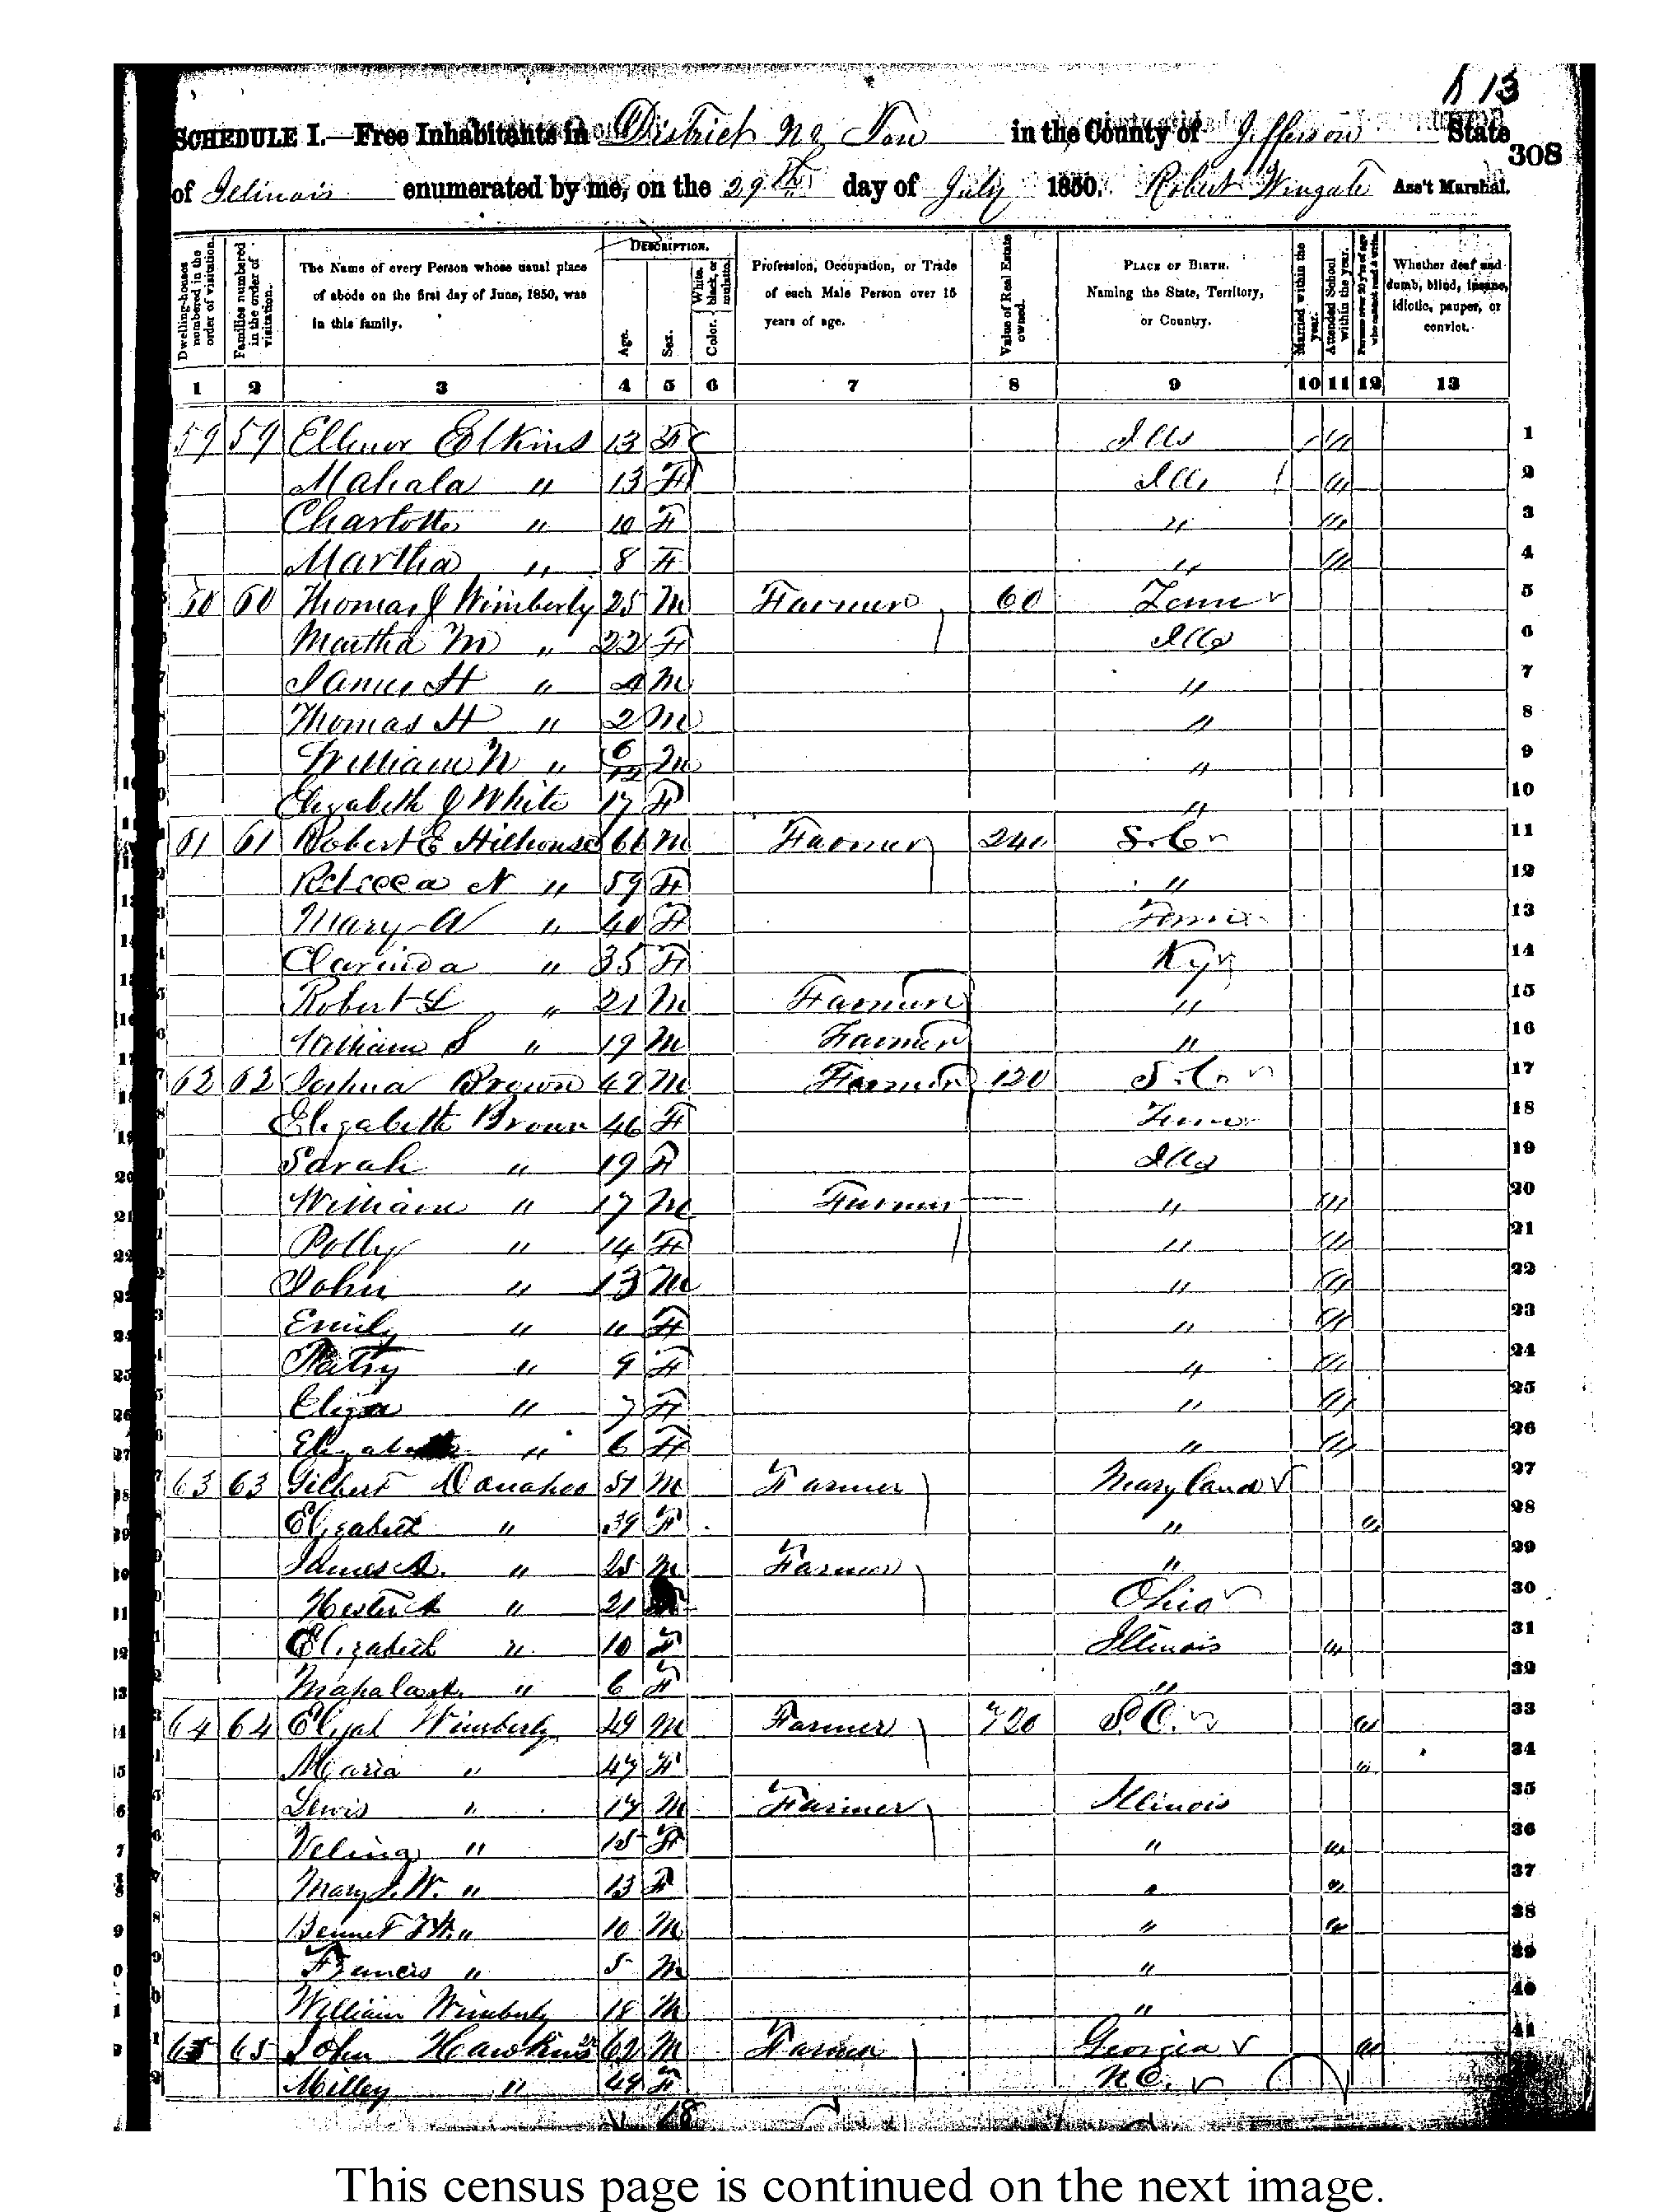 813
SCHEDULE I.—Free Inhabitants in District No Ten in the County of Jefferson State
308
of Illinois enumerated by me, on the 29th day of July 1850. Robert Wingate Ass't Marshal.
Dwelling-houses numbered in the order of visitation.
Families numbered in the order of visitation.
The Name of every Person whose usual place of abode on the first day of June, 1850, was in this family.
DESCRIPTION.
Age.
Sex.
Color. White, black, or mulatto.
Profession, Occupation, or Trade of each Male Person over 15 years of age.
Value of Real Estate owned.
PLACE OF BIRTH. Naming the State, Territory, or Country.
Married within the year.
Attended School within the year.
Persons over 20 y'rs of age who cannot read & write.
Whether deaf and dumb, blind, insane, idiotic, pauper, or convict.
1 2 3 4 5 6 7 8 9 10 11 12 13
59 59 Ellenor Elkins 13 F Ills 1
Mahala " 13 F Ills 2
Charlotte " 10 F " 3
Martha " 8 F " 4
60 60 Thomas J Wimberly 25 M Farmer 60 Tenn 5
Martha M " 22 F Ills 6
James H " 4 M " 7
Thomas H " 2 M " 8
William N " 6/12 M " 9
Elizabeth J White 17 F " 10
61 61 Robert E Hilhouse 66 M Farmer 240 S.C 11
Rebecca N " 59 F " 12
Mary A " 40 F Tenn 13
Clarinda " 35 F Ky 14
Robert L " 21 M Farmer " 15
William S " 19 M Farmer " 16
62 62 Joshua Brown 49 M Farmer 120 S.C. 17
Elizabeth Brown 46 F Tenn 18
Sarah " 19 F Ills 19
William " 17 M Farmer " 20
Polly " 14 F " 21
John " 13 M " 22
Emily " 11 F " 23
Patsy " 9 F " 24
Eliza " 7 F " 25
Elizabeth " 6 F " 26
63 63 Gilbert Donahoo 51 M Farmer Maryland 27
Elizabeth " 39 F " 28
James A. " 25 M Farmer " 29
Hester A " 21 Ohio 30
Elizabeth " 10 F Illinois 31
Mahala A. " 6 F " 32
64 64 Elijah Wimberly 49 M Farmer 720 S.C. 33
Maria " 47 F 34
Lewis " 17 M Farmer Illinois 35
Velina " 15 F " 36
Mary J. W. " 13 F " 37
Bennet " 10 M " 38
Francis " 5 M " 39
William Wimberly 18 M " 40
65 65 John Hawkins 62 M Farmer Georgia 41
Milley " 49 F N.C.
18
This census page is continued on the next image.